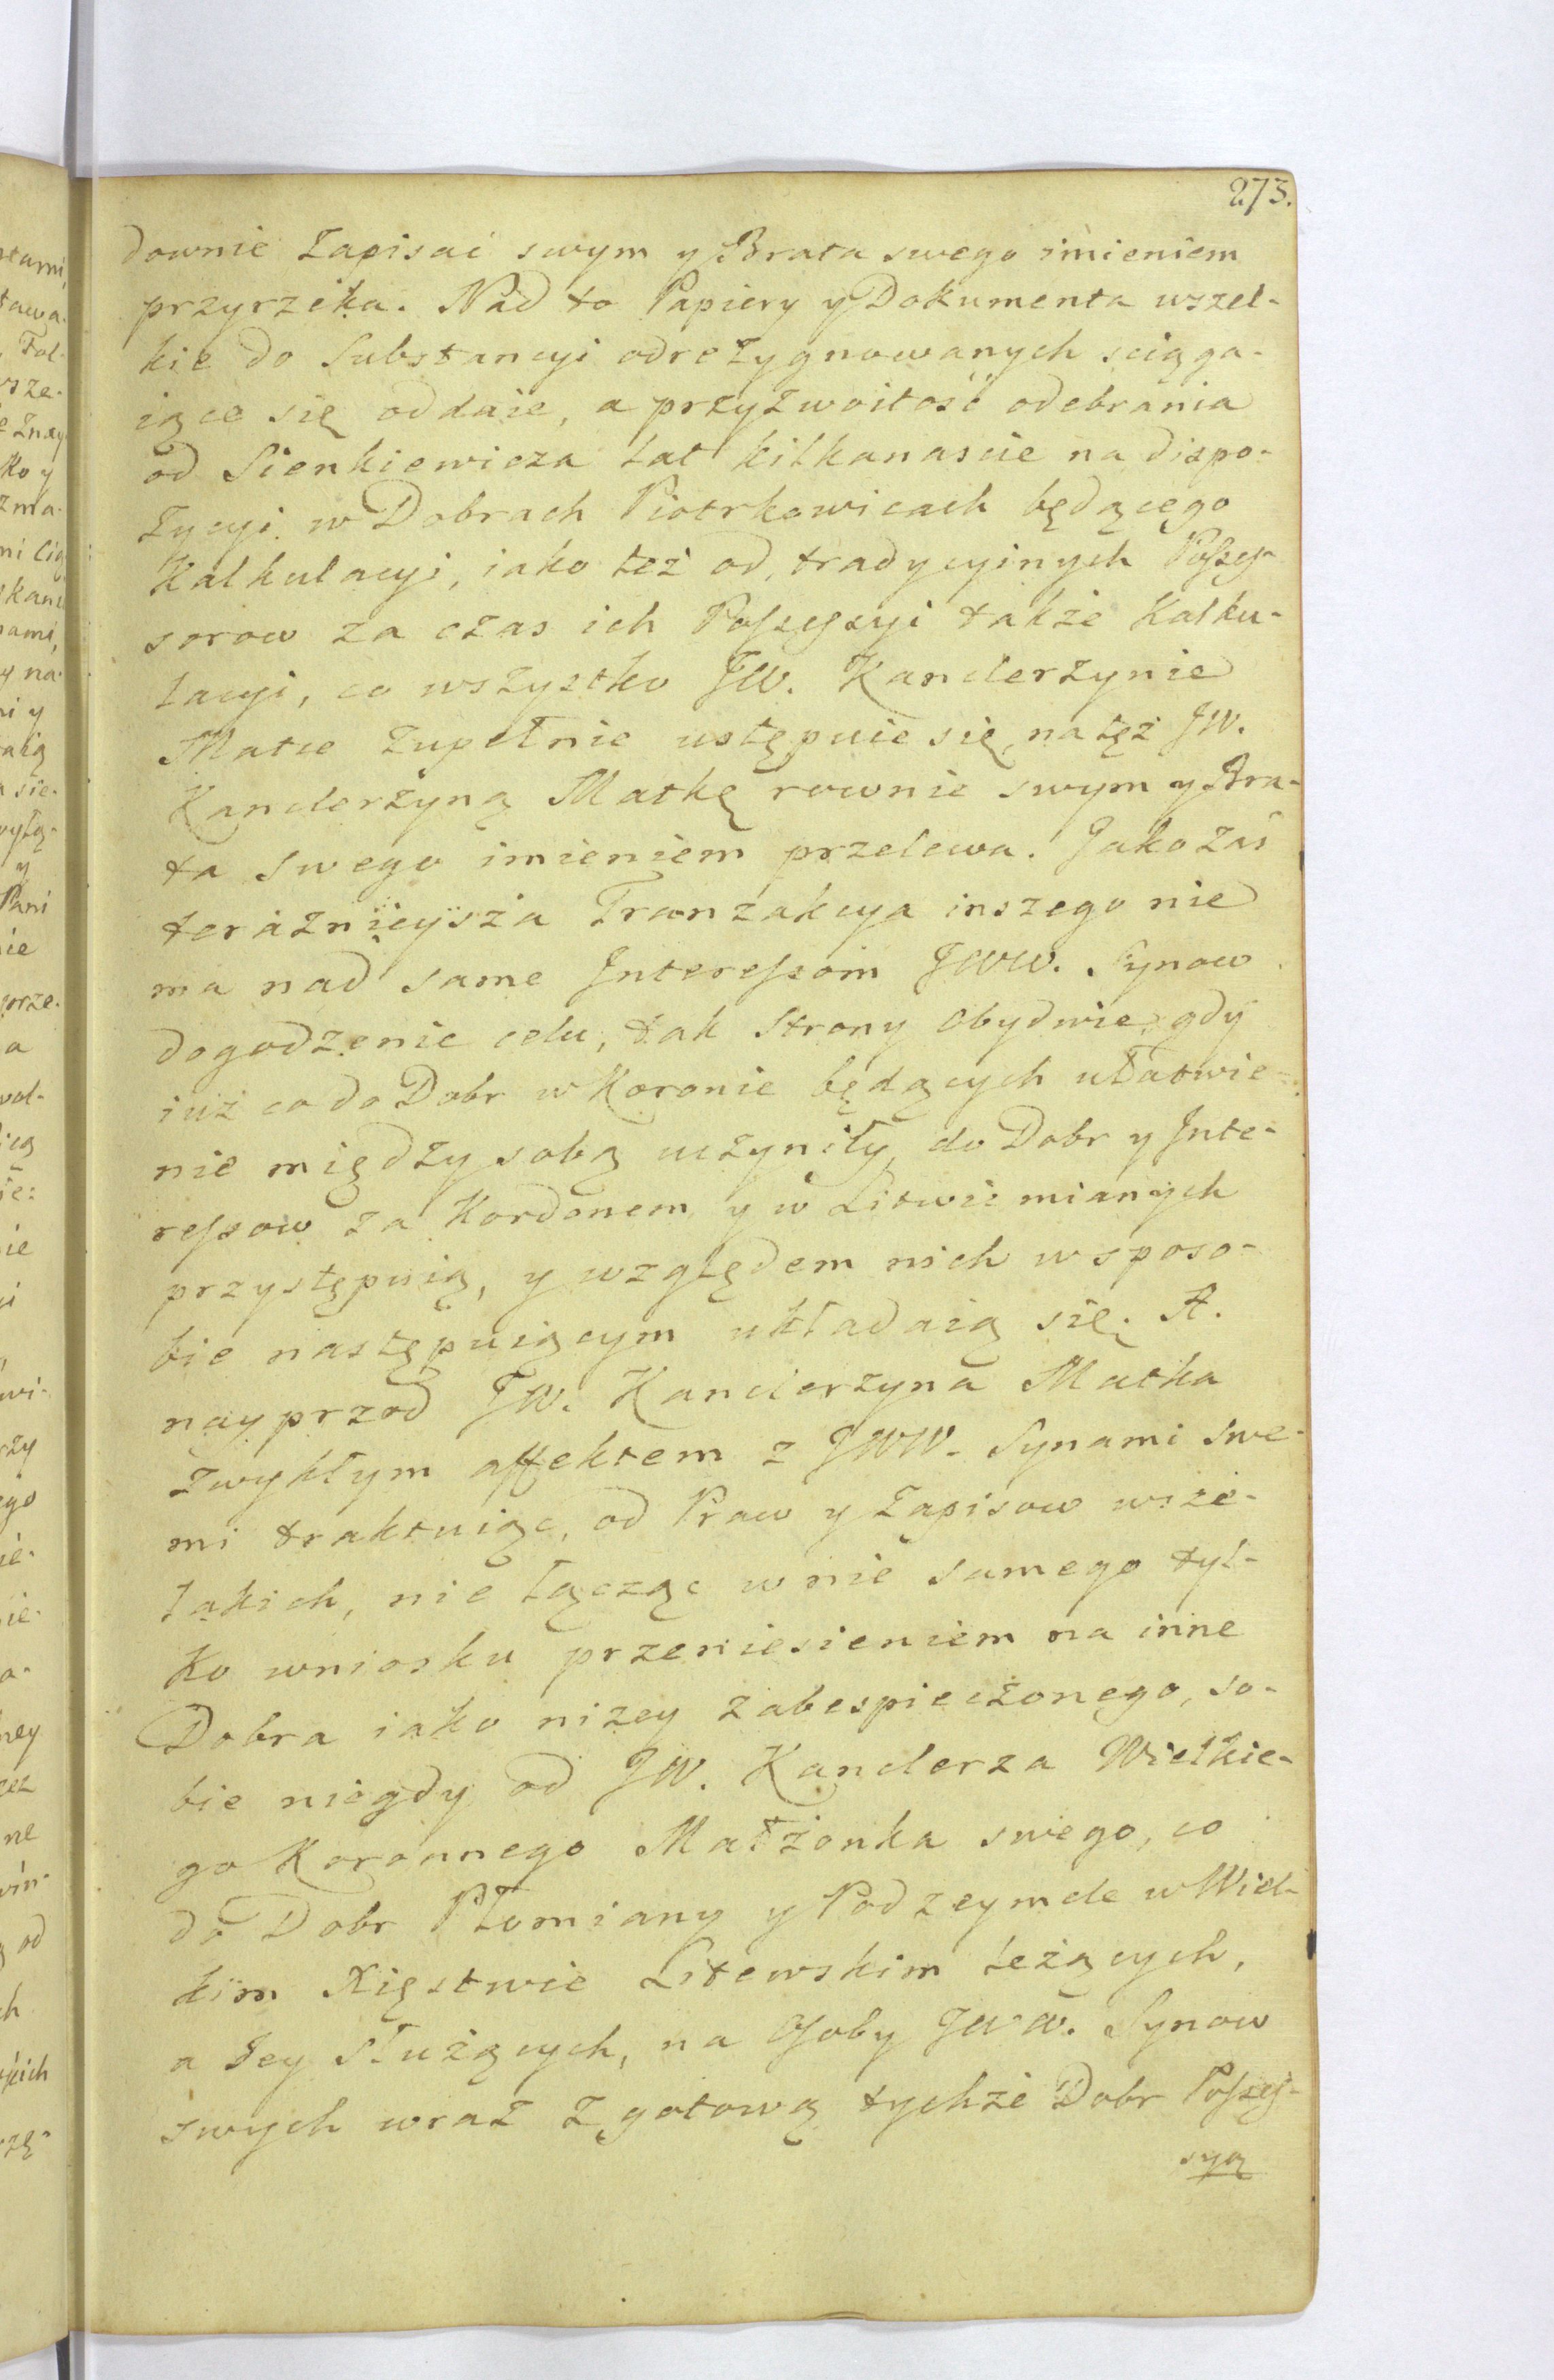 273.
downie zapisać swym y Brata swego imieniem
przyrzeka. Nad to Papiery y Dokumenta wszel-
kie do Substancyi odrezygnowanych sciąga-
iące się oddaie, a przyzwoitość odebrania
od Sienkiewicza lat kilkanascie na dispo-
zycyi w Dobrach Piotrkowicach będącego
Kalkulacyi, iako też od tradycyinych Posses-
sorow za czas ich Possessyi także Kalku-
lacyi, co wszystko JW. Kanclerzynie
Matce zupełnie ustępuie się, na tęż JW.
Kanclerzyną Matkę rownie swym y Bra-
ta swego imieniem przelewa. Jako zaś
teraznieysza Tranzakcya inszego nie
ma nad same Interessom JWW. Synow
dogodzenie celu, tak Strony obydwie, gdy
iuż co do Dobr w Koronie będących ułatwie-
nie między sobą uczyniły, do Dobr y Inte-
ressow za Kordonem y w Litwie mianych
przystępuią, y względem nich w sposo-
bie następuiącym układaią się. A.
nayprzod JW. Kanclerzyna Matka
zwykłym affektem z JWW. Synami swe-
mi traktuiąc, od Praw y Zapisow wsze-
lakich, nie łącząc w nie samego tyl-
ko wniosku przeniesieniem na inne
Dobra iako nizey zabespieczonego, so-
bie niegdy od JW. Kanclerza Wielkie-
go Koronnego Małżonka swego, co
do Dobr Płomiany y Podzeymele w Wiel-
kim Xięstwie Litewskim leżących,
a Jey służących, na Osoby JWW. Synow
swych wraz z gotową tychże Dobr Posses-
syą